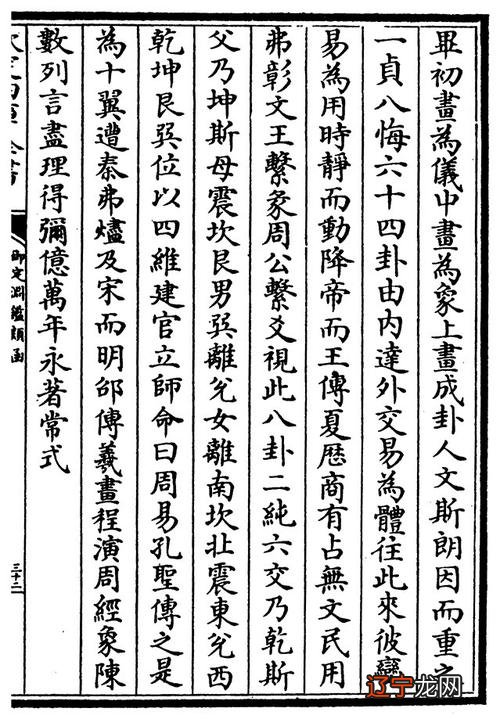 畢初畫為儀中畫為象上畫成卦人文斯朗因而重之
一貞八悔六十四卦由内達外交易為體往此來彼變
易為用時靜而動降帝而王傳夏歴商有占無文民用
弗彰文王繫彖周公繫爻視此八卦二純六交乃乾斯
父乃坤斯母震坎艮男巽離兌女離南坎北震東兌西
乾坤艮巽位以四維建官立師命曰周易孔聖傳之是
為十翼遭秦弗燼及宋而明邵傳羲畫程演周經象陳
數列言盡理得彌億萬年永著常式
御定淵鑑類函
三十二
辽宁龙网